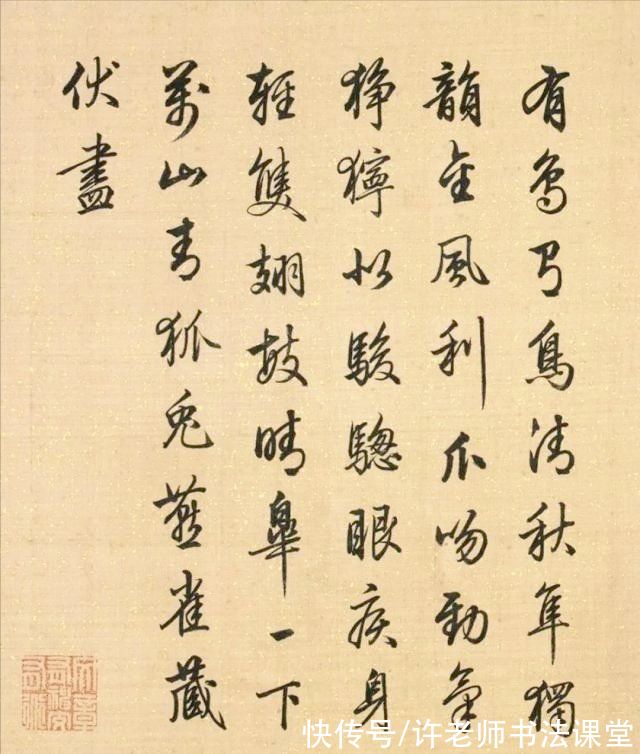 有鳥有鳥清秋隼獨
韻金風利爪吻勁氣
猙獰似駿驄眼疾身
輕雙翅鼓晴皐一下
萬山青狐兔燕雀藏
伏盡
快传号/许老师书法课堂